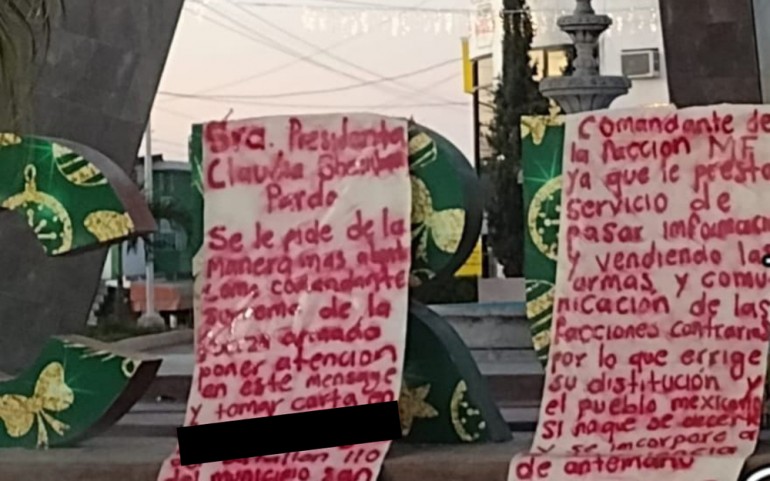 Sra. Presidenta
Claudia Sheinbaum
Pardo
Se le pide de la
manera mas atenta
como comandante
suprema de la
fuerza armada
poner atencion
en este mensage
y tomar carta en
batallon 110
del municipio san
Comandante de
la faccion MF
ya que le presto
servicio de
pasar informaci
y vendiendo las
armas y comu-
nicacion de las
facciones contrarias
por lo que errige
su distitución y
el pueblo mexicano
si haque se
y se incorpore a
de antemano